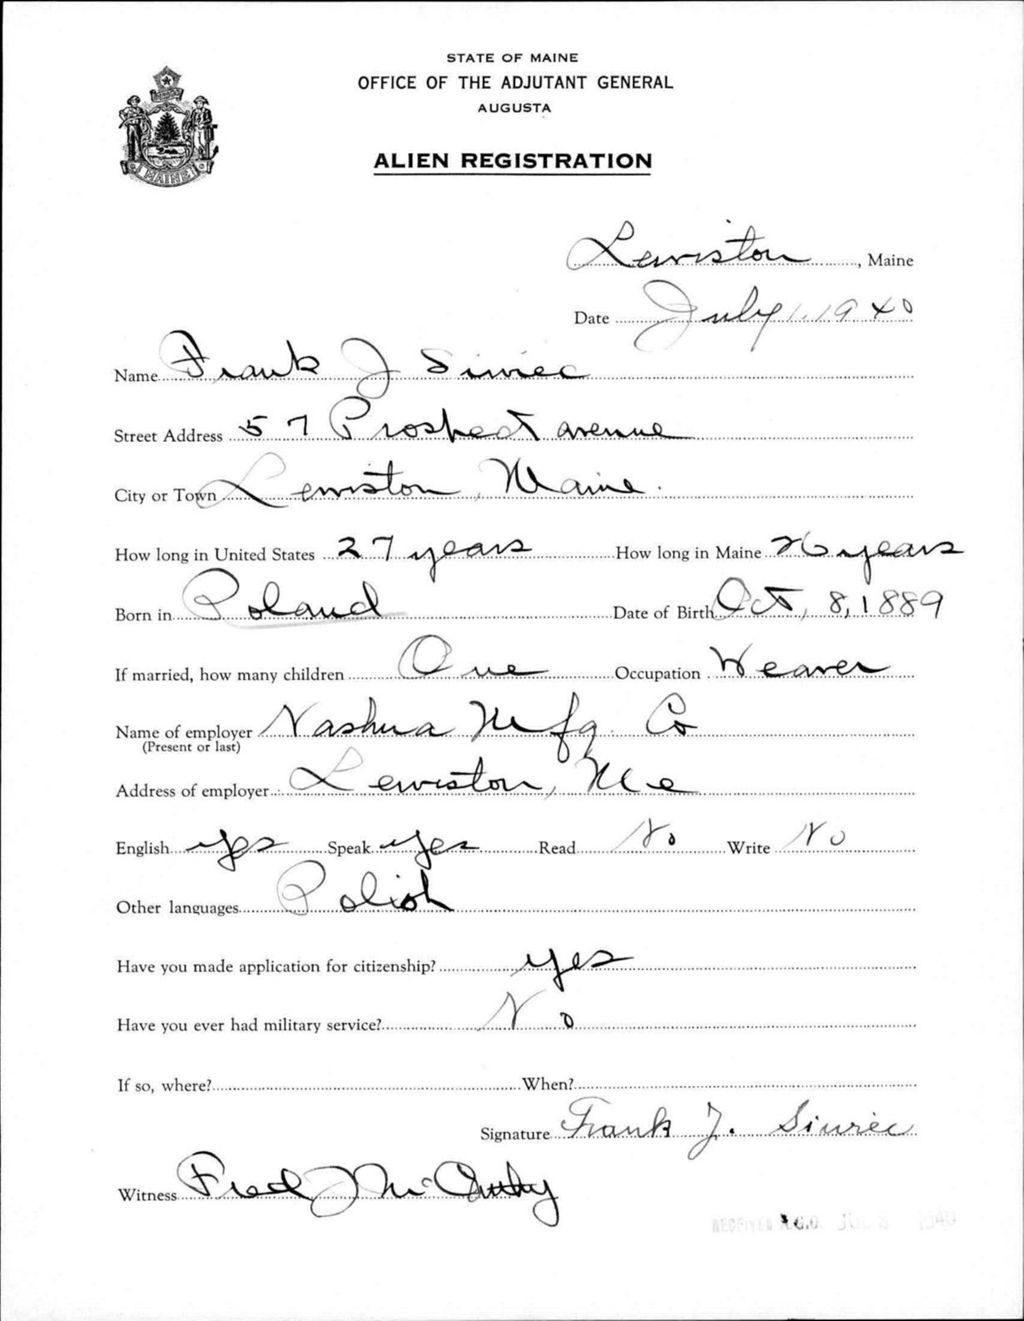 STATE OF MAINE
OFFICE OF THE ADJUTANT GENERAL
AUGUSTA
MAINE
ALIEN REGISTRATION
Lewiston, Maine
Date July 1, 1940
Name Frank J
Street Address 57 Prospect avenue
City or Town Lewiston, Maine.
How long in United States 27 years How long in Maine 26 years
Born in Poland Date of Birth Oct, 8, 1889
If married, how many children One Occupation Weaver
Name of employer Nashua Mfg. Co
(Present or last)
Address of employer Lewiston, Me
English yes Speak yes Read No Write No
Other languages Polish
Have you made application for citizenship? yes
Have you ever had military service? No
If so, where? When?
Signature Frank J.
Witness Fred J
RECEIVED A.G.O. 1940